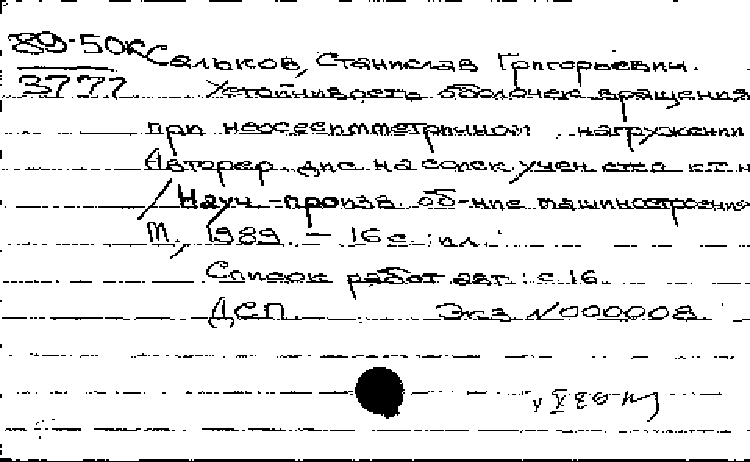 89-50к
3777
Сальков, Станислав Григорьевич.
Устойчивость оболочек вращения
при неосесимметричном нагружении
Автореф. дис. на соиск. учен. степ. к.т.н
/ Науч.-произв. об-ние машиностроения
М., 1989. - 16 с.: ил.
Список работ авт.: с. 16.
ДСП. Экз. №000008.